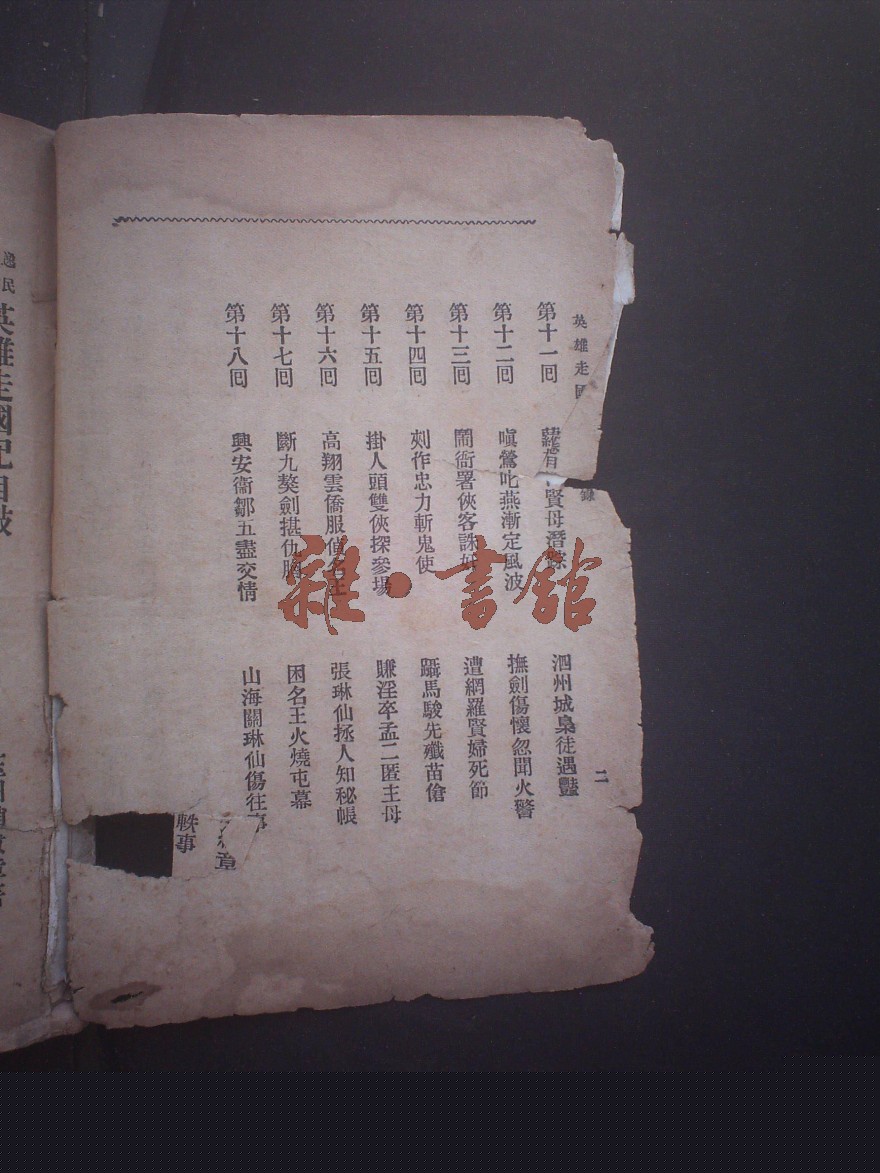 英雄走國
錄
二
第十一回 賢母潛踪 泗州城梟徒遇豔
第十二回 嗔鶯叱燕漸定風波 撫劍傷懷忽聞火警
第十三回 鬧衙署俠客誅奸 遭網羅賢婦死節
第十四回 剡作忠力斬鬼使 躡馬駿先殲苗傖
第十五回 掛人頭雙俠探參場 賺淫卒孟二匿主母
第十六回 高翔雲僑服偵名王 張琳仙拯人知秘帳
第十七回 斷九獒劍揕仇胸 困名王火燒屯幕
第十八回 興安衞鄒五盡交情 山海關琳仙傷往事
章
軼事
逸民
英雄走國記目
雜·書館